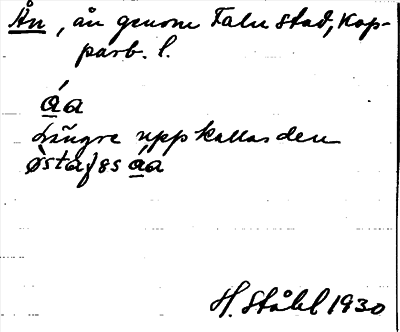 Ån, ån genom Falu stad, Kop-
parb. l.
áa
Längre upp kallas den
østafs áa
H. Ståhl 1930